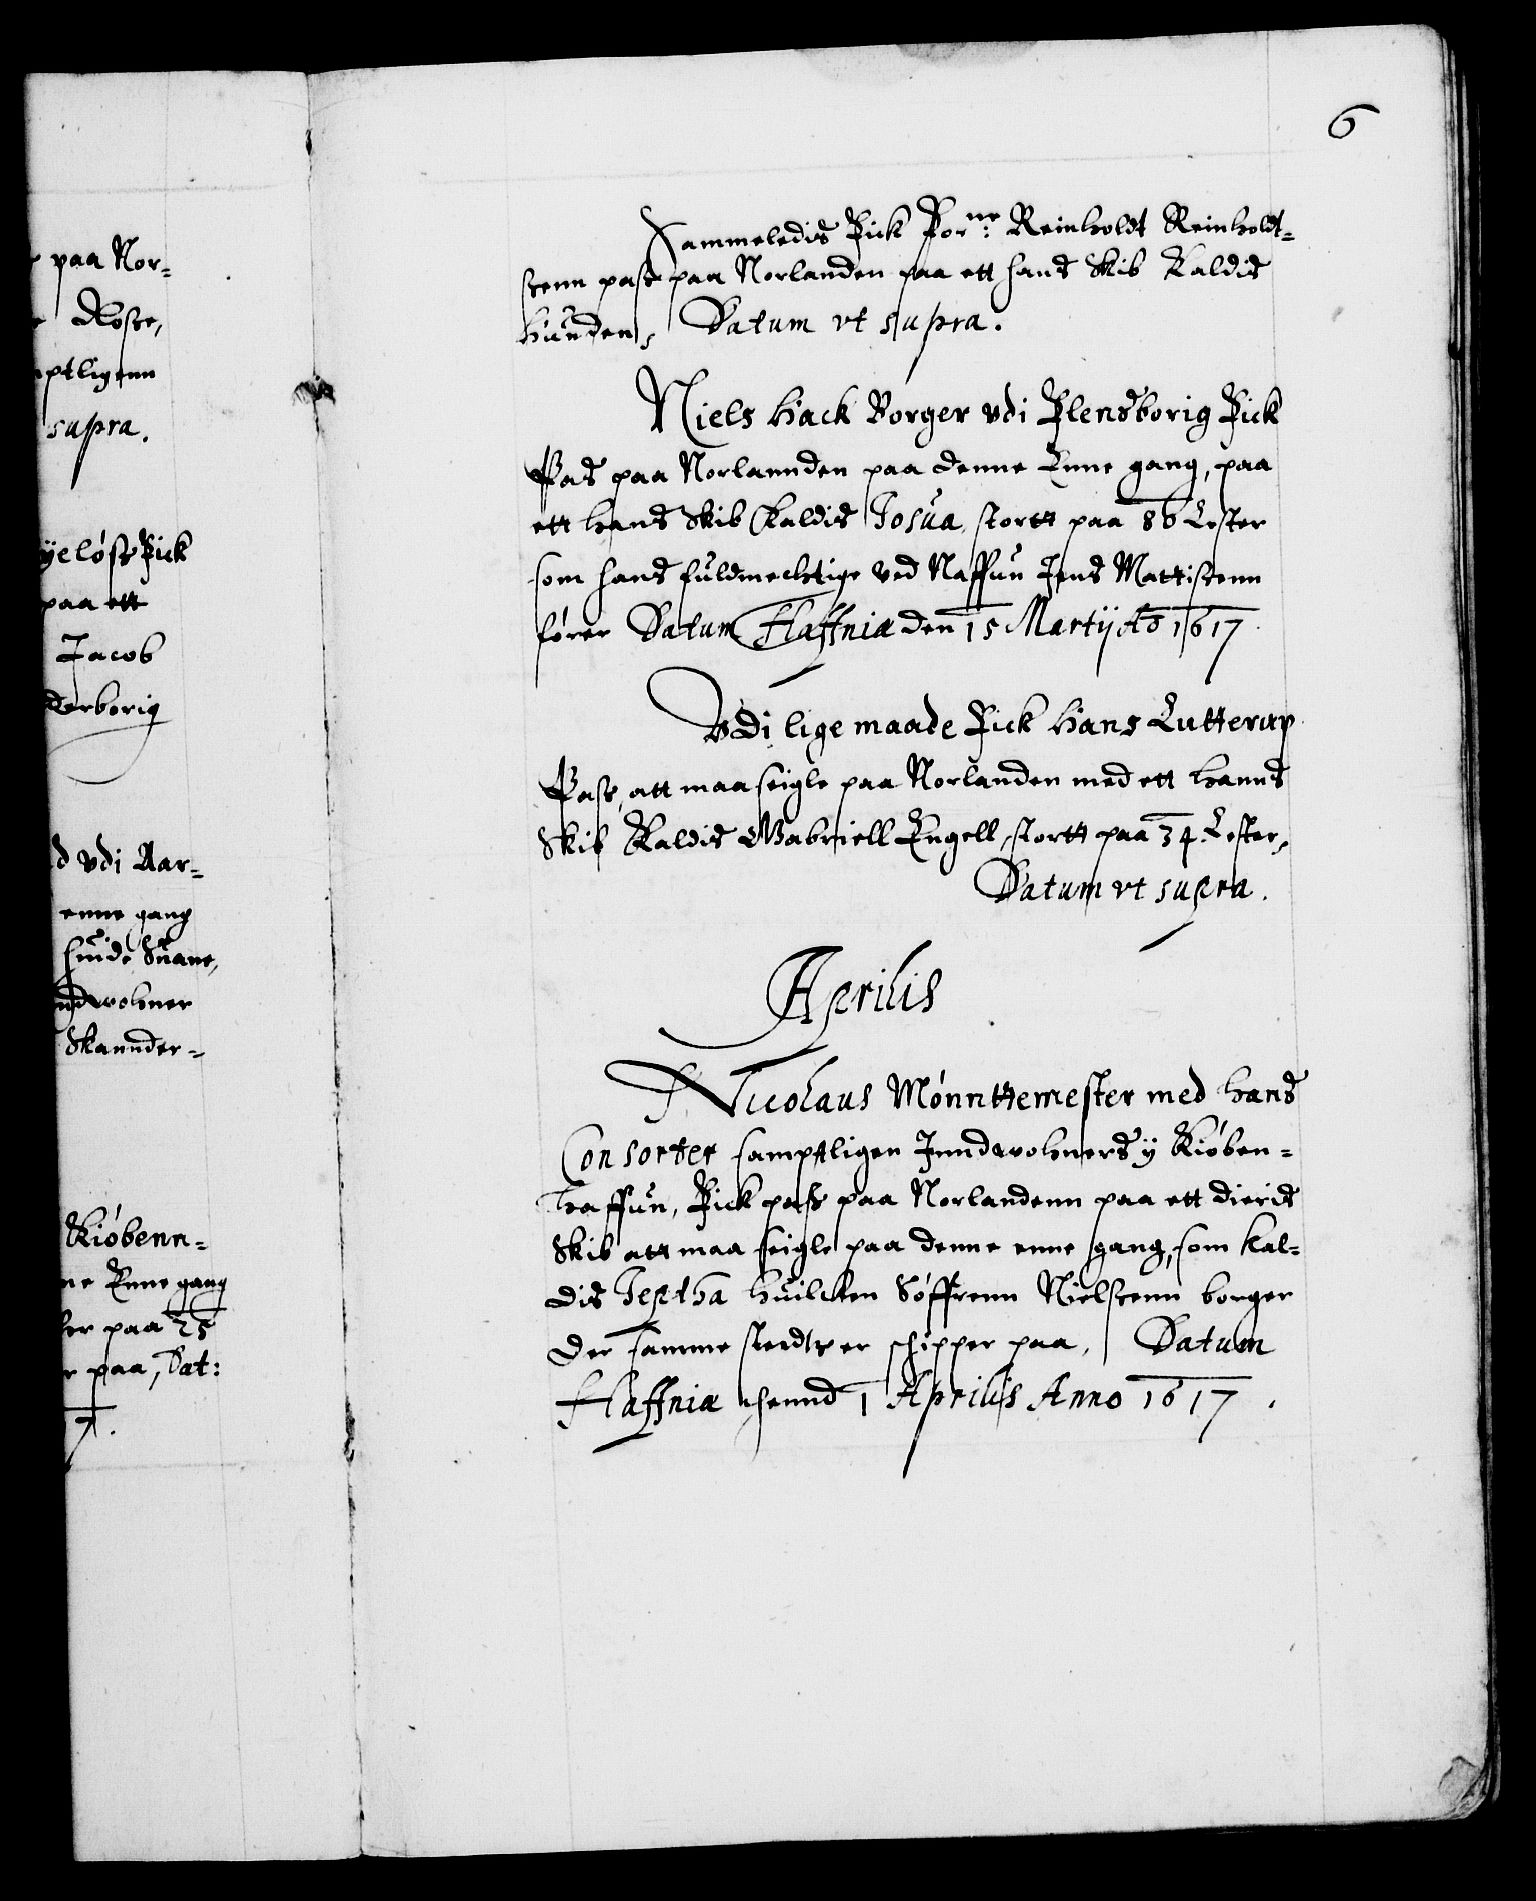 paa Nor-
Roste,
ptligenn
supra.
ÿeløse Fick
paa ett
Jacob
derborig
d vdi Aar-
enne gang
huide Suane,
ndwohner
Skannder-
Kiøbenn-
ne Enne gang
ter paa 25
r paa, Dat:
7.
6
Sammeledis Fick For.ne Reinholdt Reinholdt-
senn pass paa Norlanden paa ett hans Skib Kaldis
Hunden, Datum vt supra.
Niels Hack Borger vdi Flensborig Fick
Pas paa Norlannden paa denne Enne gang, paa
ett hans Skib Kaldis Josua, stortt paa 86 Lester
som hans fuldmechtige ved Naffun Jens Mattisenn
fører Datum Haffniæ den 15 Martij Ao 1617
Vdi lige maade Fick Hans Lutterup
Pass, att maa seigle paa Norlanden med ett hanns
Skib Kaldis Gabriell Engell, stortt paa 34. Lester,
Datum vt supra.
Aprilis
Nicolaus Mønnttemester med hans
Consorter samptligen Inndwohners ÿ Kiøben-
haffun, Fick pass paa Norlandenn paa ett dieris
Skib att maa seigle paa denne enne gang, som kal-
dis Jeptha huilcken Søffrenn Nielsenn borger
der samme stedtz er schipper paa, Datum
Haffniæ thennd 1 Aprilis Anno 1617.